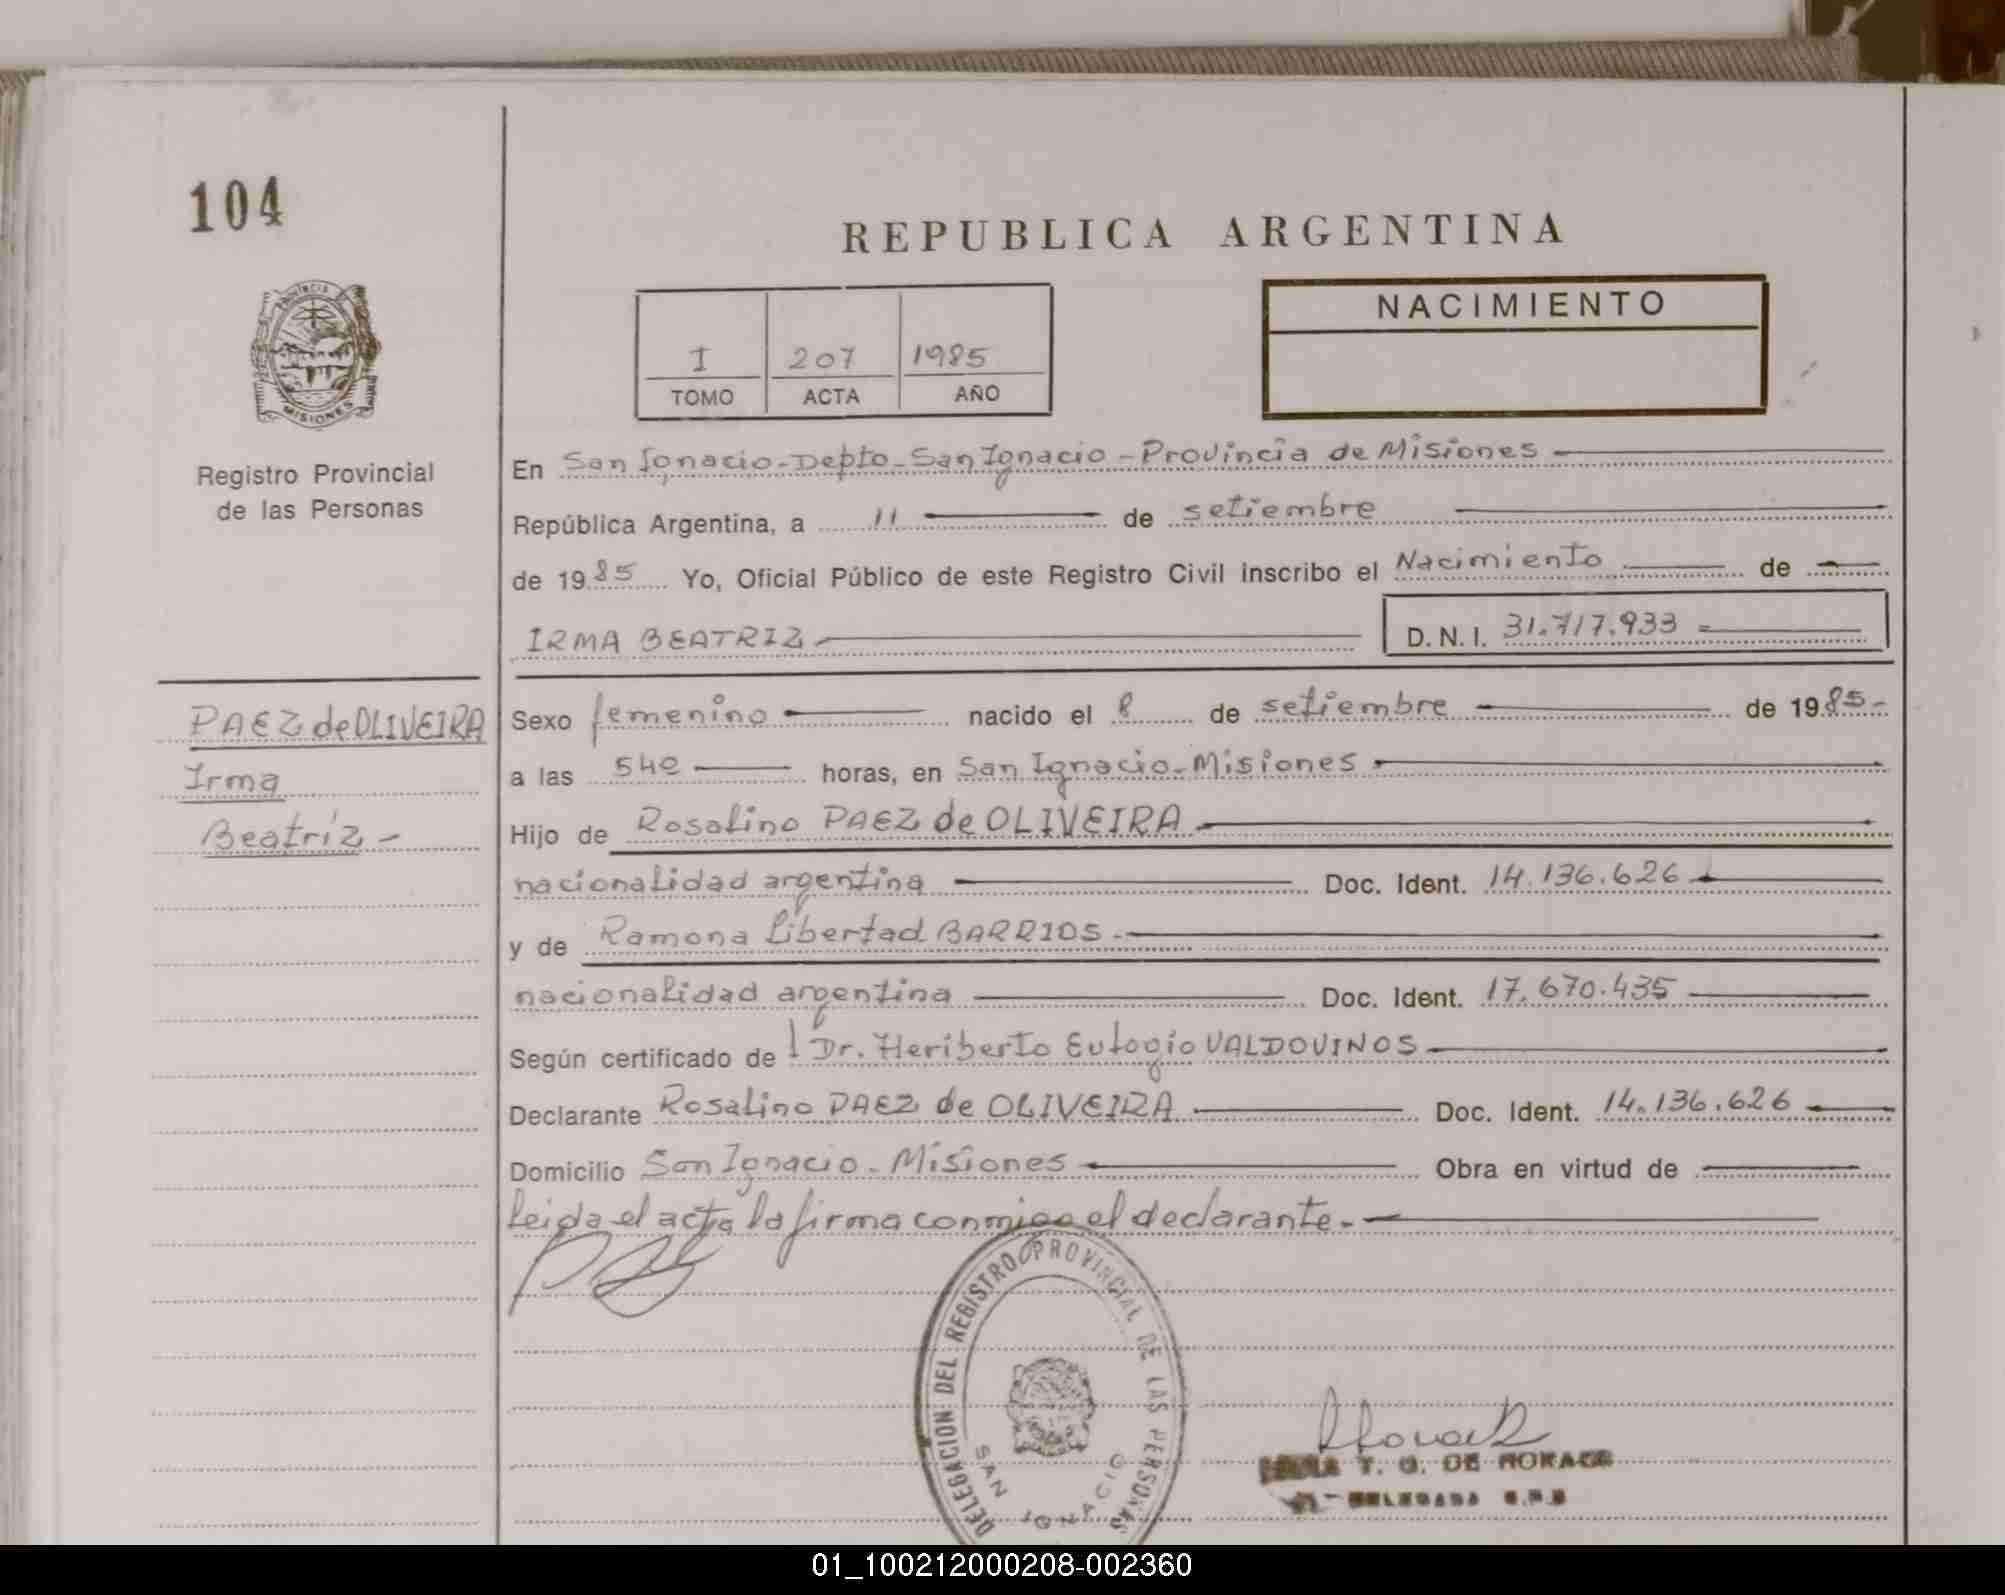 104
REPUBLICA ARGENTINA
PROVINCIA DE
MISIONES
Registro Provincial
de las Personas
I 207 1985
TOMO ACTA AÑO
NACIMIENTO
En San Ignacio - Depto - San Ignacio - Provincia de Misiones
República Argentina, a 11 de setiembre
de 1985 Yo, Oficial Público de este Registro Civil inscribo el Nacimiento de
IRMA BEATRIZ D.N.I. 31.717.933
PAEZ de OLIVEIRA
Irma
Beatriz -
Sexo femenino nacido el 8 de setiembre de 1985-
a las 540 horas, en San Ignacio - Misiones
Hijo de Rosalino PAEZ de OLIVEIRA
nacionalidad argentina Doc. Ident. 14.136.626
y de Ramona Libertad BARRIOS -
nacionalidad argentina Doc. Ident. 17.670.435
Según certificado de Dr. Heriberto Eulogio VALDOVINOS
Declarante Rosalino PAEZ de OLIVEIRA Doc. Ident. 14.136.626
Domicilio San Ignacio - Misiones Obra en virtud de
leida el acta la firma conmigo el declarante.-
DELEGACION DEL REGISTRO PROVINCIAL DE LAS PERSONAS
SAN IGNACIO
T. G. DE
DELEGADA
01_100212000208-002360